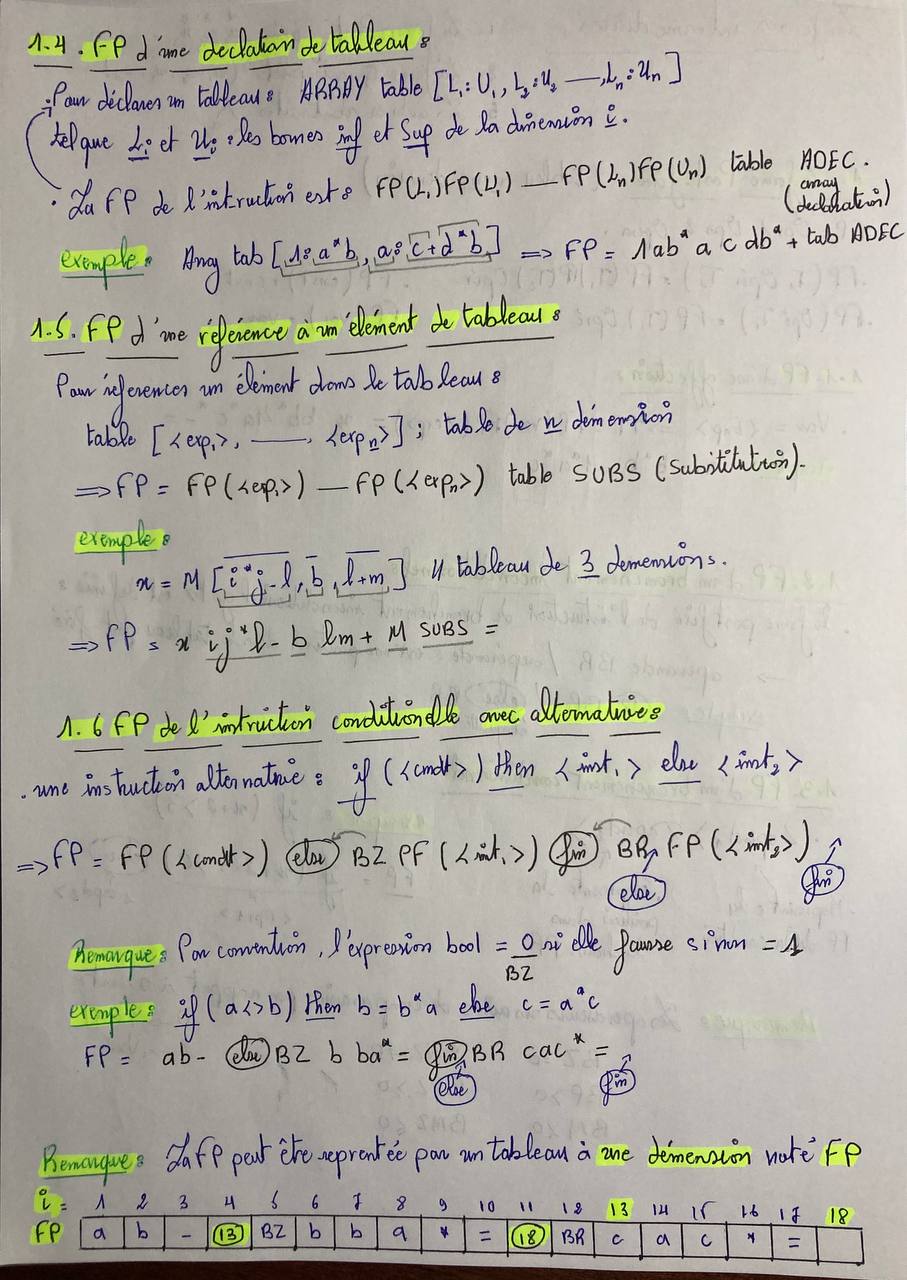 1.4. FP d'une declation de tableau :
- Pour déclarer un tableau : ARRAY table [L₁:U₁, L₂:U₂ —, Lₙ:Uₙ]
tel que Li et Ui : les bornes inf et Sup de la dimension i.
. La FP de l'intruction est : FP(L₁)FP(U₁) — FP(Lₙ)FP(Uₙ) table ADEC.
(array declaration)
exemple : Array tab [1:a*b, a:c+d*b] ⟹ FP = 1ab* a c db* + tab ADEC
1.5. FP d'une référence à un élément de tableau :
Pour réferencer un élément dans le tableau :
table [<exp₁>, —, <expₙ>] ; table de n démension
⟹ FP = FP(<exp₁>) — FP(<expₙ>) table SUBS (Substitution).
exemple :
x = M [i*j-l, b, l+m] // tableau de 3 demensions.
⟹ FP = x ij*l- b lm+ M SUBS =
1.6 FP de l'intruction conditionelle avec alternative :
. une instruction alternative : if (<cmdt>) then <inst₁> else <inst₂>
⟹ FP = FP(<condt>) else BZ PF(<int₁>) fin BR FP(<int₂>)
else fin
Remarque : Par convention, l'expression bool = 0 si elle fausse sinon = 1
BZ
exemple : if (a<>b) then b = b*a else c = a*c
FP = ab- else BZ b ba* = fin BR cac* =
else fin
Remarque : La FP peut être reprentée par un tableau à une démension noté FP
i = 1 2 3 4 5 6 7 8 9 10 11 12 13 14 15 16 17 18
FP a b - 13 BZ b b a * = 18 BR c a c * =